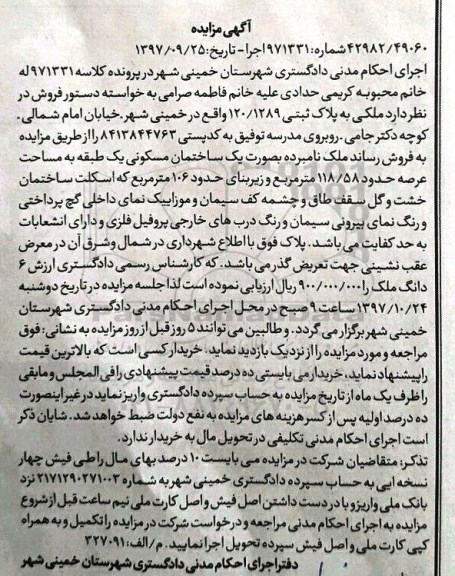 آگهی مزایده
۴۲۹۸۲/۴۹۰۶۰ شماره: ۹۷۱۳۳۱ اجرا - تاریخ: ۱۳۹۷/۰۹/۲۵
اجرای احکام مدنی دادگستری شهرستان خمینی شهر در پرونده کلاسه ۹۷۱۳۳۱ له
خانم محبوبه کریمی حدادی علیه خانم فاطمه صرامی به خواسته دستور فروش در
نظر دارد ملکی به پلاک ثبتی ۱۲۰/۱۲۸۹ واقع در خمینی شهر. خیابان امام شمالی.
کوچه دکتر جامی. روبروی مدرسه توفیق به کدپستی ۸۴۱۳۸۴۴۷۶۳ را از طریق مزایده
به فروش رساند ملک نامبرده بصورت یک ساختمان مسکونی یک طبقه به مساحت
عرصه حدود ۱۱۸/۵۸ مترمربع و زیربنای حدود ۱۰۶ مترمربع که اسکلت ساختمان
خشت و گل سقف طاق و چشمه کف سیمان و موزاییک نمای داخلی گچ پرداختی
و رنگ نمای بیرونی سیمان و رنگ درب های خارجی پروفیل فلزی و دارای انشعابات
به حد کفایت می باشد. پلاک فوق با اطلاع شهرداری در شمال و شرق آن در معرض
عقب نشینی جهت تعریض گذر می باشد. که کارشناس رسمی دادگستری ارزش ۶
دانگ ملک را ۹۰۰/۰۰۰/۰۰۰ ریال ارزیابی نموده است لذا جلسه مزایده در تاریخ دوشنبه
۱۳۹۷/۱۰/۲۴ ساعت ۹ صبح در محل اجرای احکام مدنی دادگستری شهرستان
خمینی شهر برگزار می گردد. و طالبین می توانند ۵ روز قبل از روز مزایده به نشانی: فوق
مراجعه و مورد مزایده را از نزدیک بازدید نماید. خریدار کسی است که بالاترین قیمت
را پیشنهاد نماید، خریدار می بایستی ده درصد قیمت پیشنهادی را فی المجلس و مابقی
را ظرف یک ماه از تاریخ مزایده به حساب سپرده دادگستری واریز نماید در غیر اینصورت
ده درصد اولیه پس از کسر هزینه های مزایده به نفع دولت ضبط خواهد شد. شایان ذکر
است اجرای احکام مدنی تکلیفی در تحویل مال به خریدار ندارد.
تذکر: متقاضیان شرکت در مزایده می بایست ۱۰ درصد بهای مال را طی فیش چهار
نسخه ایی به حساب سپرده دادگستری خمینی شهر به شماره ۲۱۷۱۲۹۰۲۷۱۰۰۳ نزد
بانک ملی واریز و با در دست داشتن اصل فیش و اصل کارت ملی نیم ساعت قبل از شروع
مزایده به اجرای احکام مدنی مراجعه و درخواست شرکت در مزایده را تکمیل و به همراه
کپی کارت ملی و اصل فیش سپرده تحویل اجرا نمایید. م/الف: ۳۲۷۰۹۱
دفتر اجرای احکام مدنی دادگستری شهرستان خمینی شهر